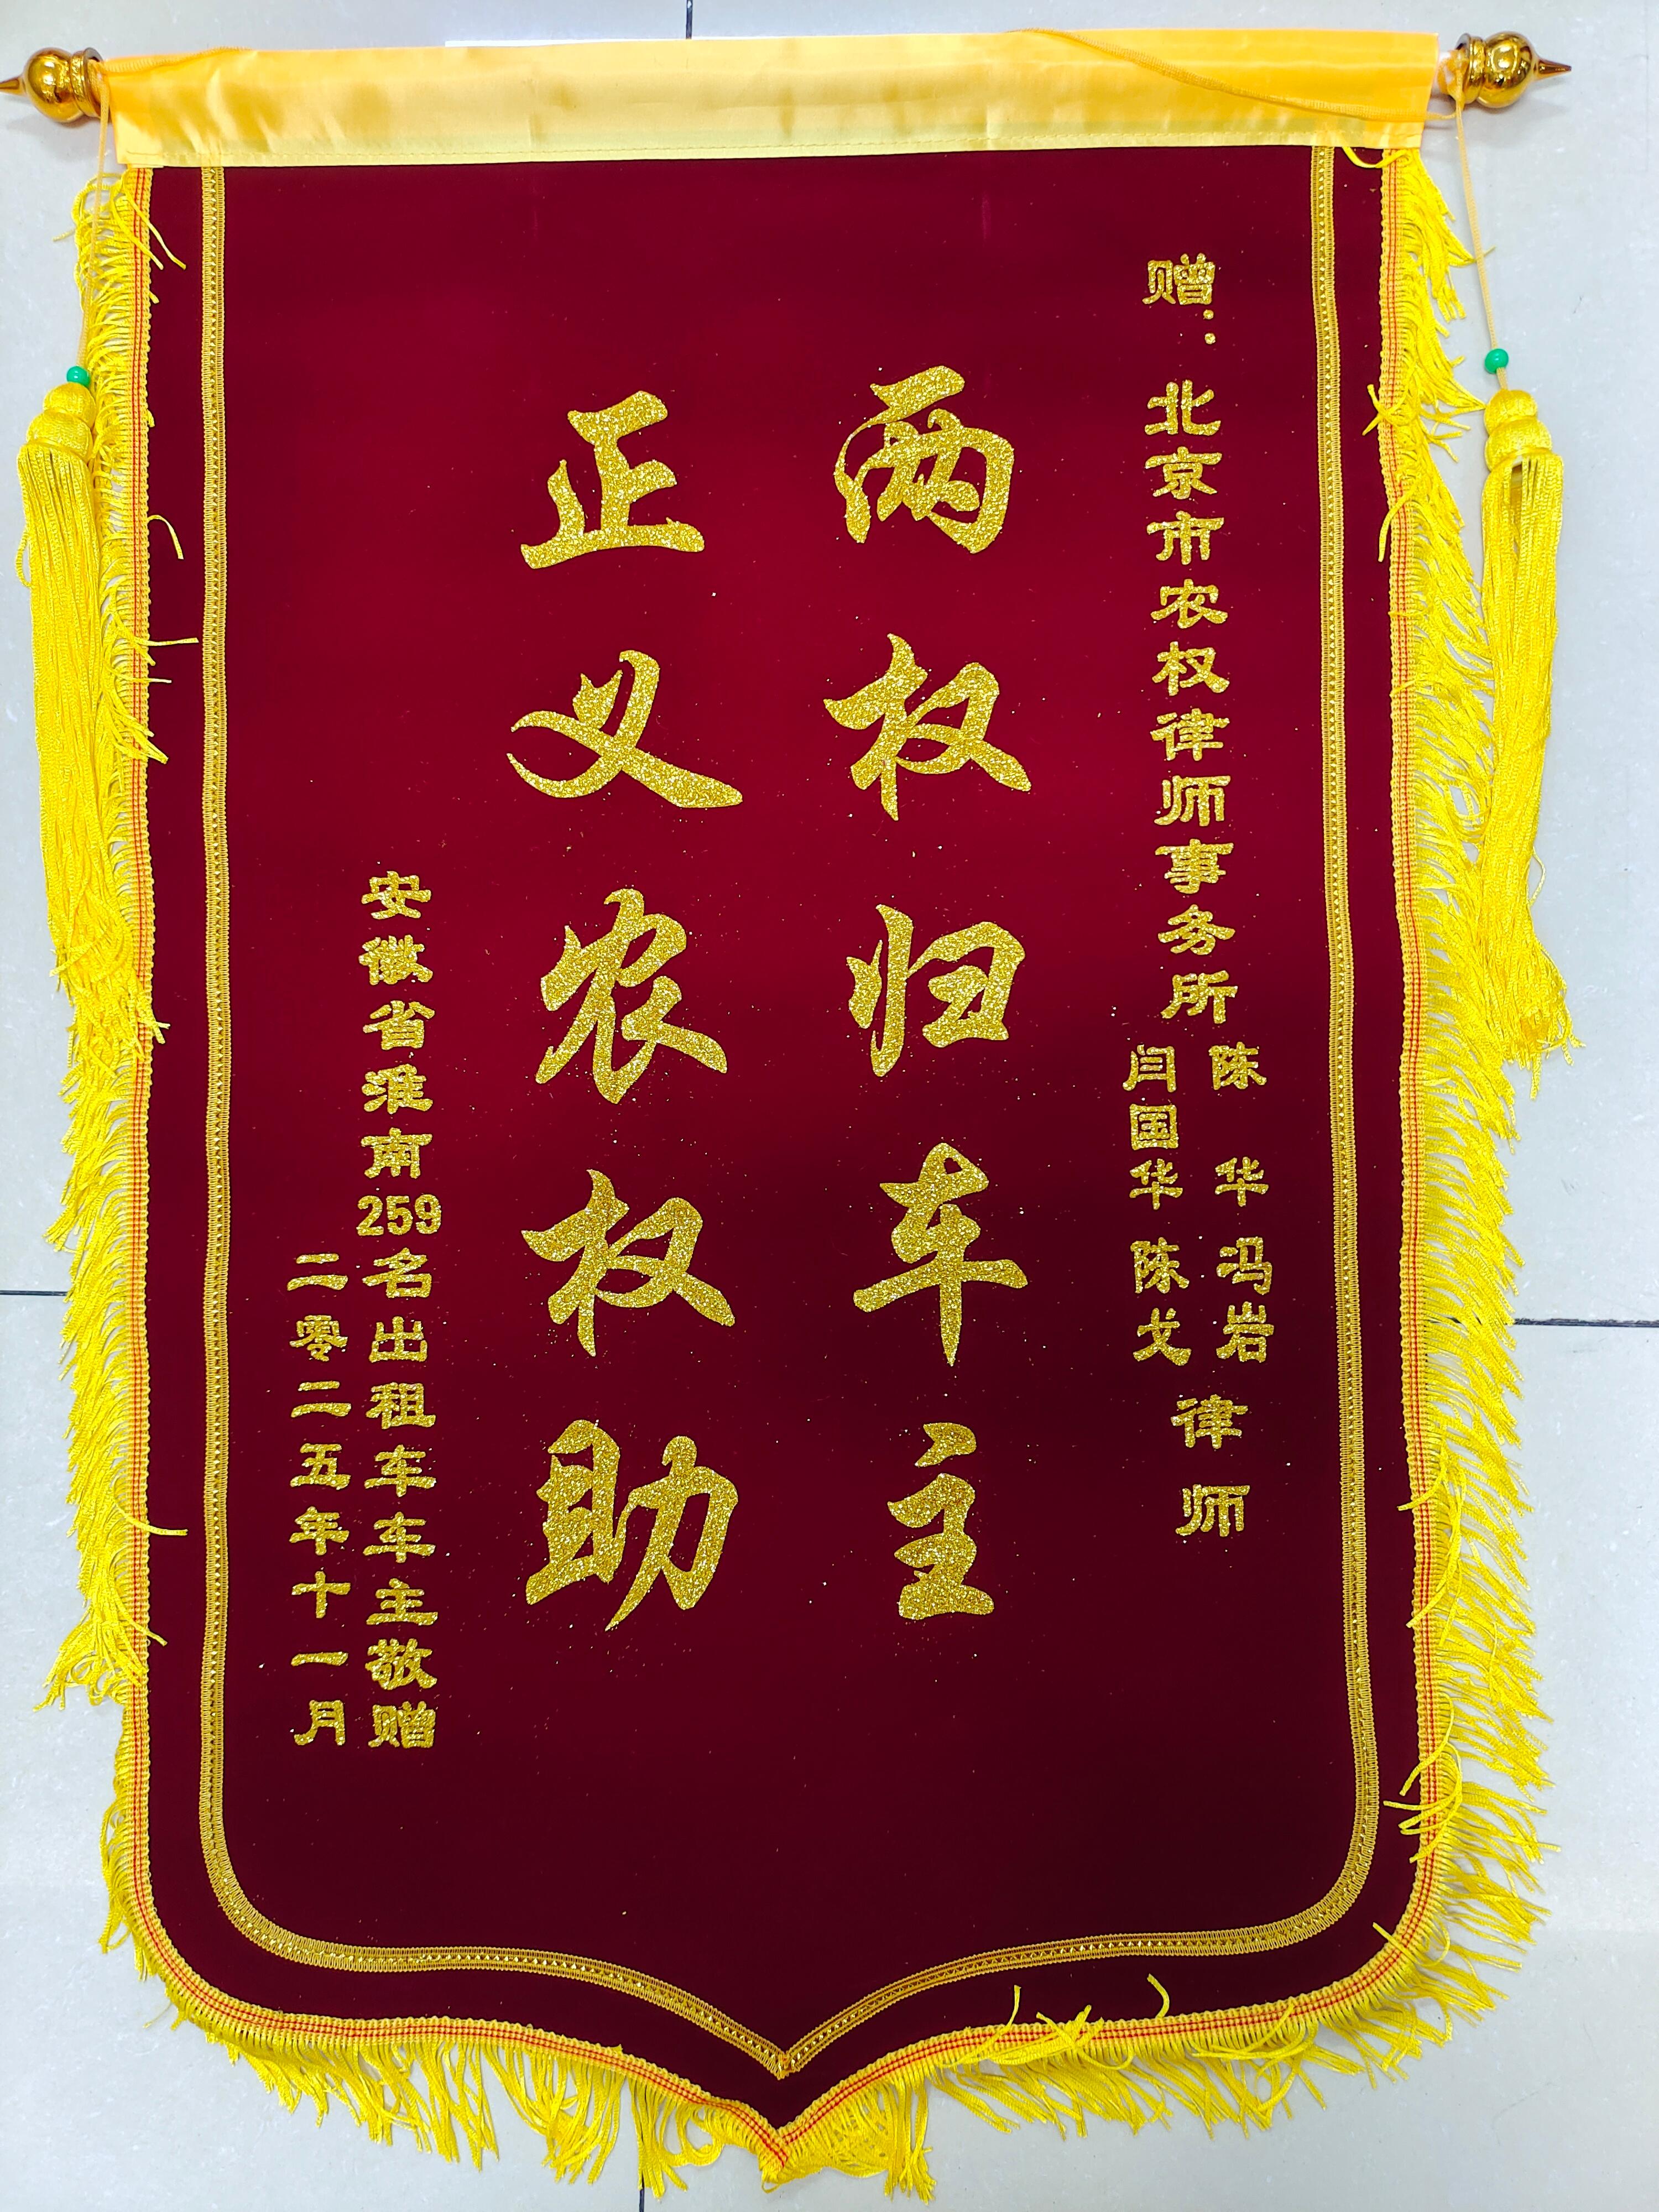 赠：北京市农权律师事务所
陈 华 冯岩
闫国华 陈戈
律师
两权归车主
正义农权助
安徽省淮南259名出租车车主敬赠
二零二五年十一月